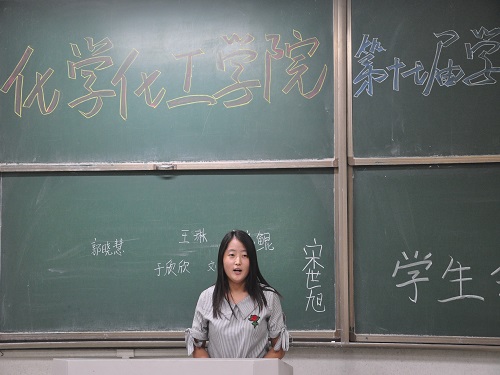 化学化工学院
第十七届学
王琳
鲲
郭晓慧
于欣欣
文
宋世旭
学生会